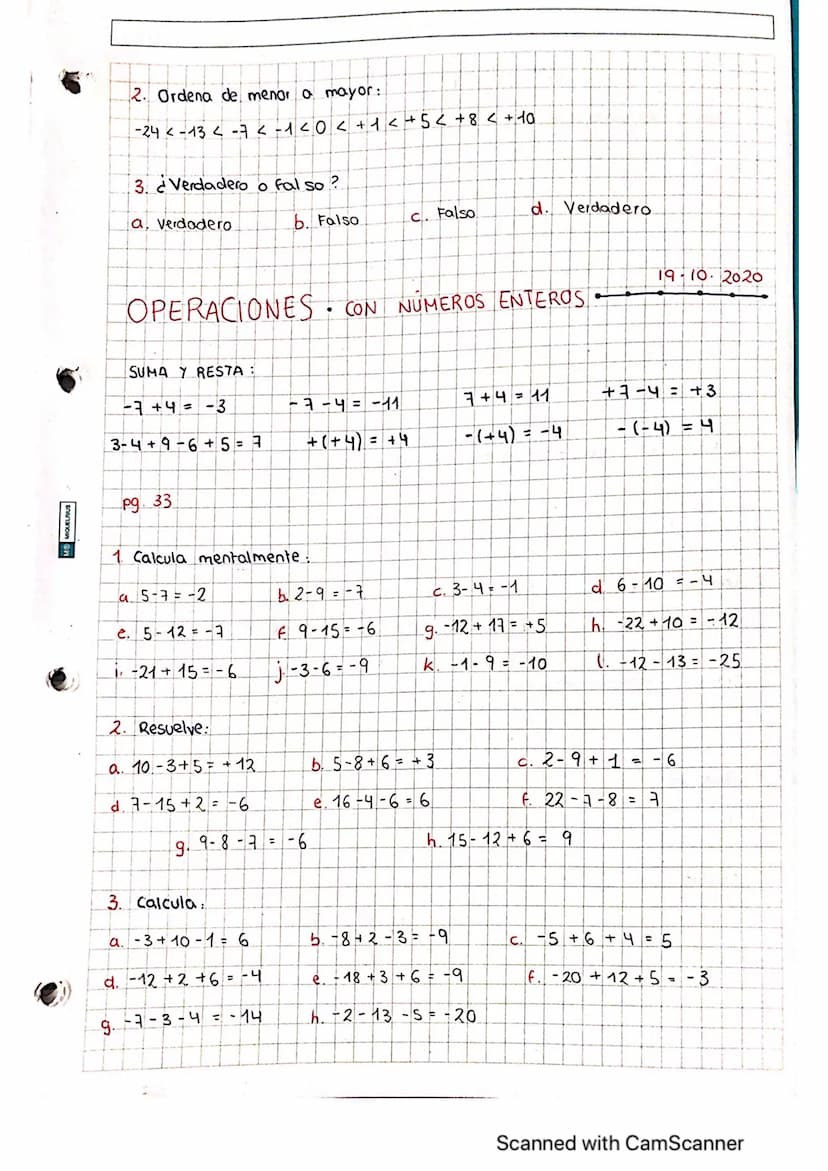 2. Ordena de menor a mayor:
-24 < -13 < -7 < -1 < 0 < +1 < +5 < +8 < +10
3. ¿Verdadero o falso?
a. Verdadero b. Falso c. Falso d. Verdadero
19·10·2020
OPERACIONES · CON NÚMEROS ENTEROS
SUMA Y RESTA:
-7 +4 = -3 -7-4 = -11 7+4 = 11 +7-4 = +3
3-4+9-6+5 = 7 +(+4) = +4 -(+4) = -4 -(-4) = 4
pg. 33
1 Calcula mentalmente:
a. 5-7 = -2 b. 2-9 = -7 c. 3-4 = -1 d. 6-10 = -4
e. 5-12 = -7 f. 9-15 = -6 g. -12+17 = +5 h. -22+10 = -12
i. -21+15 = -6 j. -3-6 = -9 k. -1-9 = -10 l. -12-13 = -25
2. Resuelve:
a. 10-3+5 = +12 b. 5-8+6 = +3 c. 2-9+1 = -6
d. 7-15+2 = -6 e. 16-4-6 = 6 f. 22-7-8 = 7
g. 9-8-7 = -6 h. 15-12+6 = 9
3. Calcula:
a. -3+10-1 = 6 b. -8+2-3 = -9 c. -5+6+4 = 5
d. -12+2+6 = -4 e. -18+3+6 = -9 f. -20+12+5 = -3
g. -7-3-4 = -14 h. -2-13-5 = -20
MIQUELRIUS
Scanned with CamScanner